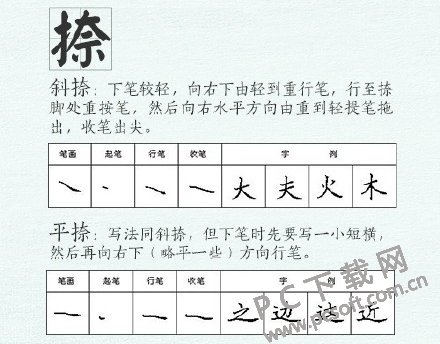 捺
斜捺：下笔较轻，向右下由轻到重行笔，行至捺
脚处重按笔，然后向右水平方向由重到轻提笔拖
出，收笔出尖。
笔画 起笔 行笔 收笔 字 例
大 夫 火 木
平捺：写法同斜捺，但下笔时先要写一小短横，
然后再向右下（略平一些）方向行笔。
笔画 起笔 行笔 收笔 字 例
之 边 达 近
PC下载网
www.pcsoft.com.cn